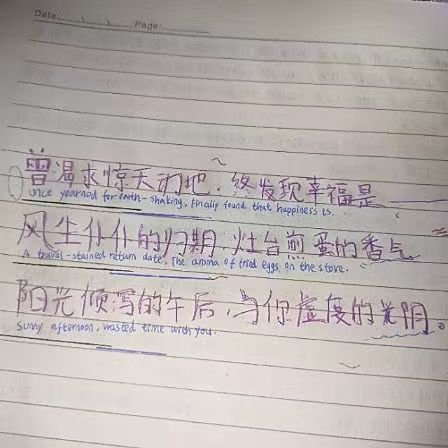 Date: Page:
曾渴求惊天动地，终发现幸福是——
once yearned for earth-shaking, finally found that happiness is.
风尘仆仆的归期，灶台煎蛋的香气
A travel-stained return date, The aroma of fried eggs on the stove.
阳光倾泻的午后，与你虚度的光阴。
Sunny afternoon, wasted time with you.